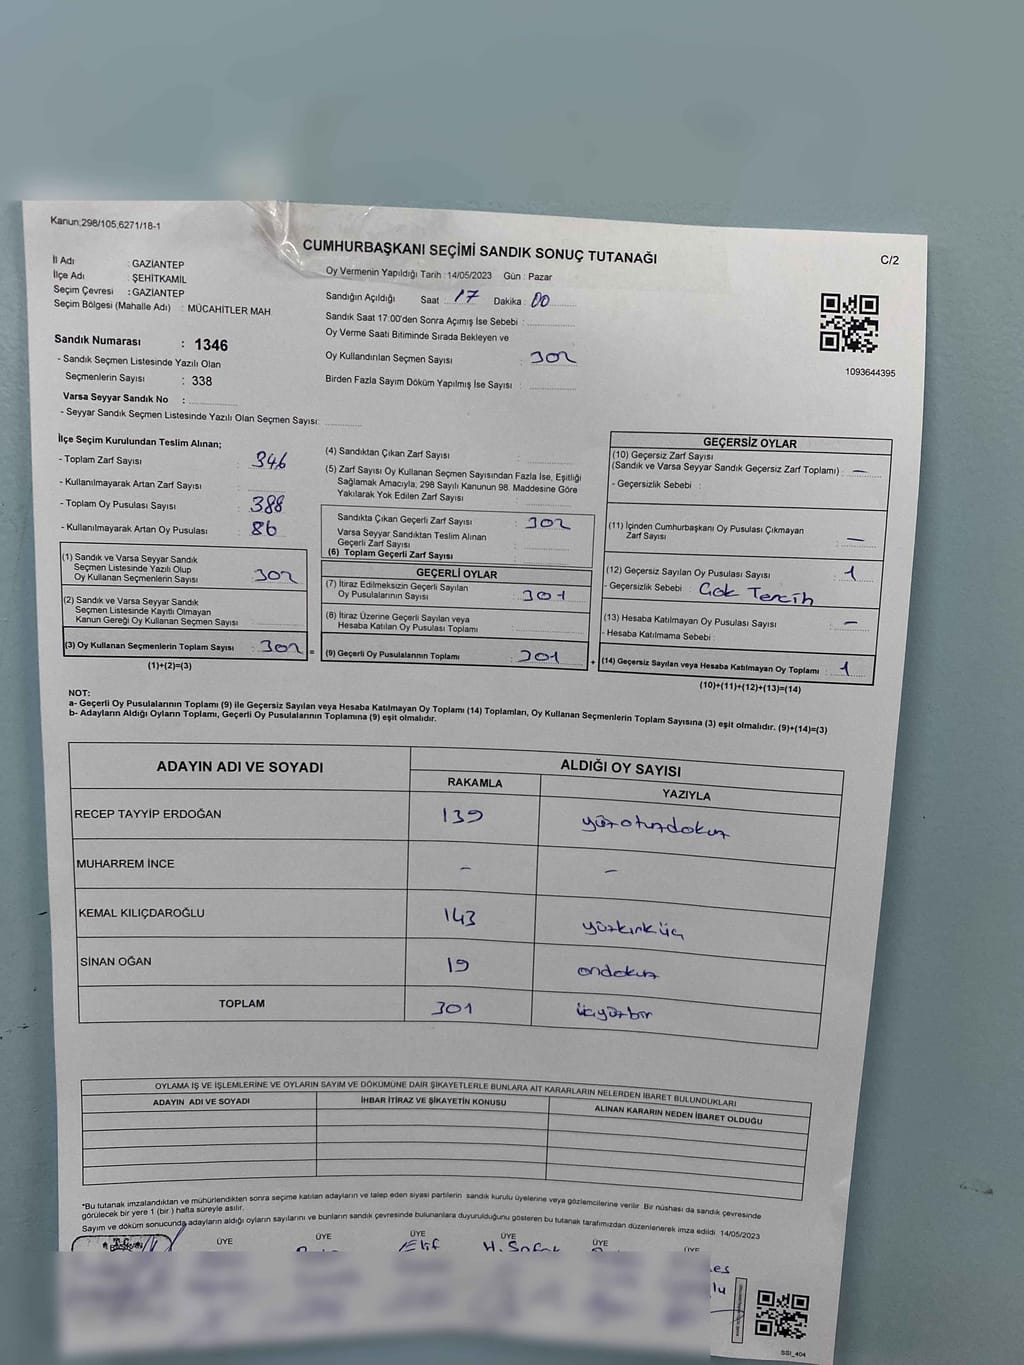 Kanun;298/105,6271/18-1
CUMHURBAŞKANI SEÇİMİ SANDIK SONUÇ TUTANAĞI
C/2
İl Adı : GAZİANTEP
İlçe Adı : ŞEHİTKAMİL
Seçim Çevresi : GAZİANTEP
Seçim Bölgesi (Mahalle Adı) : MÜCAHİTLER MAH.
Oy Vermenin Yapıldığı Tarih : 14/05/2023 Gün : Pazar
Sandığın Açıldığı Saat 17 Dakika : 00
Sandık Saat 17:00'den Sonra Açımış İse Sebebi :
Oy Verme Saati Bitiminde Sırada Bekleyen ve
Oy Kullandırılan Seçmen Sayısı : 302
Birden Fazla Sayım Döküm Yapılmış İse Sayısı :
1093644395
Sandık Numarası : 1346
- Sandık Seçmen Listesinde Yazılı Olan
Seçmenlerin Sayısı : 338
Varsa Seyyar Sandık No :
- Seyyar Sandık Seçmen Listesinde Yazılı Olan Seçmen Sayısı:
İlçe Seçim Kurulundan Teslim Alınan;
- Toplam Zarf Sayısı : 346
- Kullanılmayarak Artan Zarf Sayısı :
- Toplam Oy Pusulası Sayısı : 388
- Kullanılmayarak Artan Oy Pusulası : 86
(1) Sandık ve Varsa Seyyar Sandık
Seçmen Listesinde Yazılı Olup
Oy Kullanan Seçmenlerin Sayısı : 302
(2) Sandık ve Varsa Seyyar Sandık
Seçmen Listesinde Kayıtlı Olmayan
Kanun Gereği Oy Kullanan Seçmen Sayısı :
(3) Oy Kullanan Seçmenlerin Toplam Sayısı : 302 =
(1)+(2)=(3)
(4) Sandıktan Çıkan Zarf Sayısı :
(5) Zarf Sayısı Oy Kullanan Seçmen Sayısından Fazla İse, Eşitliği
Sağlamak Amacıyla; 298 Sayılı Kanunun 98. Maddesine Göre
Yakılarak Yok Edilen Zarf Sayısı :
Sandıkta Çıkan Geçerli Zarf Sayısı : 302
Varsa Seyyar Sandıktan Teslim Alınan
Geçerli Zarf Sayısı :
(6) Toplam Geçerli Zarf Sayısı :
GEÇERLİ OYLAR
(7) İtiraz Edilmeksizin Geçerli Sayılan
Oy Pusulalarının Sayısı : 301
(8) İtiraz Üzerine Geçerli Sayılan veya
Hesaba Katılan Oy Pusulası Toplamı :
(9) Geçerli Oy Pusulalarının Toplamı : 301 +
GEÇERSİZ OYLAR
(10) Geçersiz Zarf Sayısı
(Sandık ve Varsa Seyyar Sandık Geçersiz Zarf Toplamı) : —
- Geçersizlik Sebebi :
(11) İçinden Cumhurbaşkanı Oy Pusulası Çıkmayan
Zarf Sayısı : —
(12) Geçersiz Sayılan Oy Pusulası Sayısı : 1
- Geçersizlik Sebebi : Çok Tercih
(13) Hesaba Katılmayan Oy Pusulası Sayısı : —
- Hesaba Katılmama Sebebi :
(14) Geçersiz Sayılan veya Hesaba Katılmayan Oy Toplamı : 1
(10)+(11)+(12)+(13)=(14)
NOT:
a- Geçerli Oy Pusulalarının Toplamı (9) ile Geçersiz Sayılan veya Hesaba Katılmayan Oy Toplamı (14) Toplamları, Oy Kullanan Seçmenlerin Toplam Sayısına (3) eşit olmalıdır. (9)+(14)=(3)
b- Adayların Aldığı Oyların Toplamı, Geçerli Oy Pusulalarının Toplamına (9) eşit olmalıdır.
ADAYIN ADI VE SOYADI ALDIĞI OY SAYISI
RAKAMLA YAZIYLA
RECEP TAYYİP ERDOĞAN 139 yüzotuzdokuz
MUHARREM İNCE – –
KEMAL KILIÇDAROĞLU 143 yüzkırküç
SİNAN OĞAN 19 ondokuz
TOPLAM 301 üçyüzbir
OYLAMA İŞ VE İŞLEMLERİNE VE OYLARIN SAYIM VE DÖKÜMÜNE DAİR ŞİKAYETLERLE BUNLARA AİT KARARLARIN NELERDEN İBARET BULUNDUKLARI
ADAYIN ADI VE SOYADI İHBAR İTİRAZ VE ŞİKAYETİN KONUSU ALINAN KARARIN NEDEN İBARET OLDUĞU
*Bu tutanak imzalandıktan ve mühürlendikten sonra seçime katılan adayların ve talep eden siyasi partilerin sandık kurulu üyelerine veya gözlemcilerine verilir. Bir nüshası da sandık çevresinde
görülecek bir yere 1 (bir ) hafta süreyle asılır.
Sayım ve döküm sonucunda adayların aldığı oyların sayılarını ve bunların sandık çevresinde bulunanlara duyurulduğunu gösteren bu tutanak tarafımızdan düzenlenerek imza edildi 14/05/2023
ÜYE ÜYE ÜYE ÜYE ÜYE ÜYE
Elif H. Şafak
SSI_404